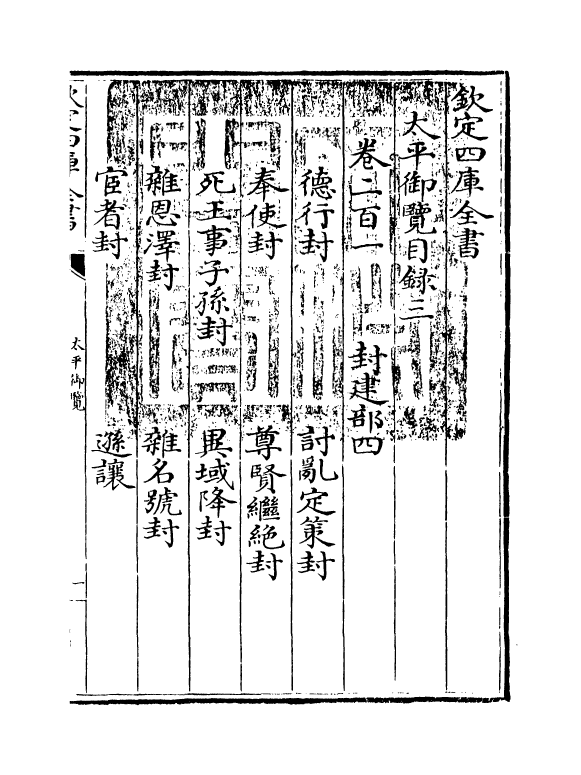 欽定四庫全書
太平御覽目録三
卷二百一　封建部四
德行封　討亂定策封
奉使封　尊賢繼絶封
死王事子孫封　異域降封
雜恩澤封　雜名號封
宦者封　遜讓
欽定四庫全書
太平御覽
一